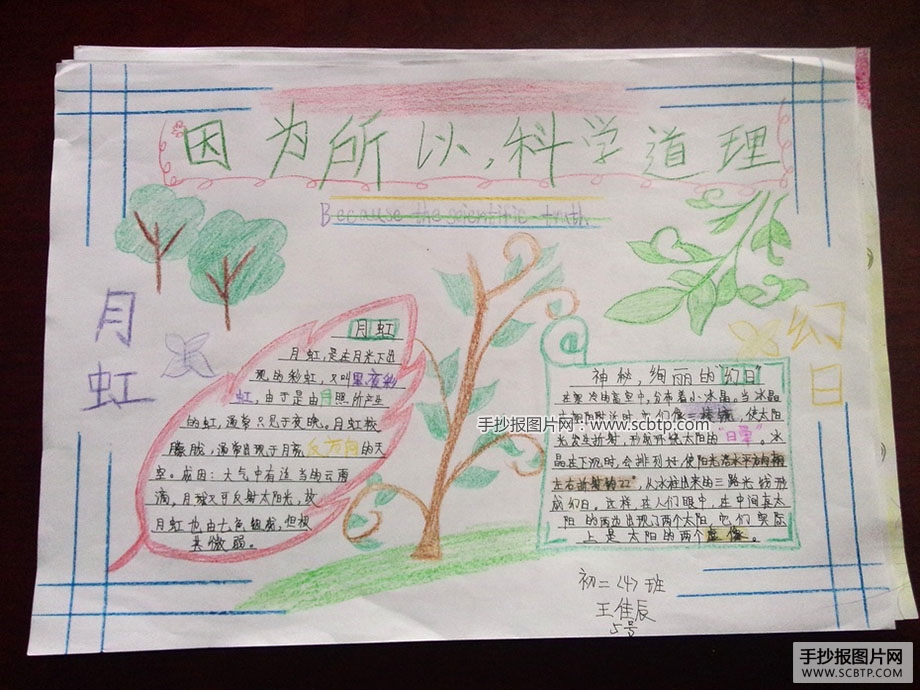 因为所以,科学道理
Because the scientific truth
月虹
幻日
月虹
月虹,是在月光下出
现的彩虹,又叫黑夜彩
虹,由于是由月照所产生
的虹,通常只见于夜晚。月虹较
朦胧,通常出现于月亮反方向的天
空。成因:大气中有适当的云雨
滴,月球又可反射太阳光,故
月虹也由七色组成,但极
其微弱。
神秘,绚丽的"幻日"
在寒冷的高空中,分布着小冰晶。当冰晶
使太阳
光发生折射,形成环绕太阳的"日晕"。冰
晶在下沉时,会排列好使阳光沿水平方向
左右折射约22°,从冰柱出来的三路光线形
成幻日。这样,在人们眼中,在中间真太
阳的两边出现了两个太阳,它们实际
上是太阳的两个虚像。
手抄报图片网:www.scbtp.com
初二(4)班
王佳辰
5号
手抄报图片网
WWW.SCBTP.COM